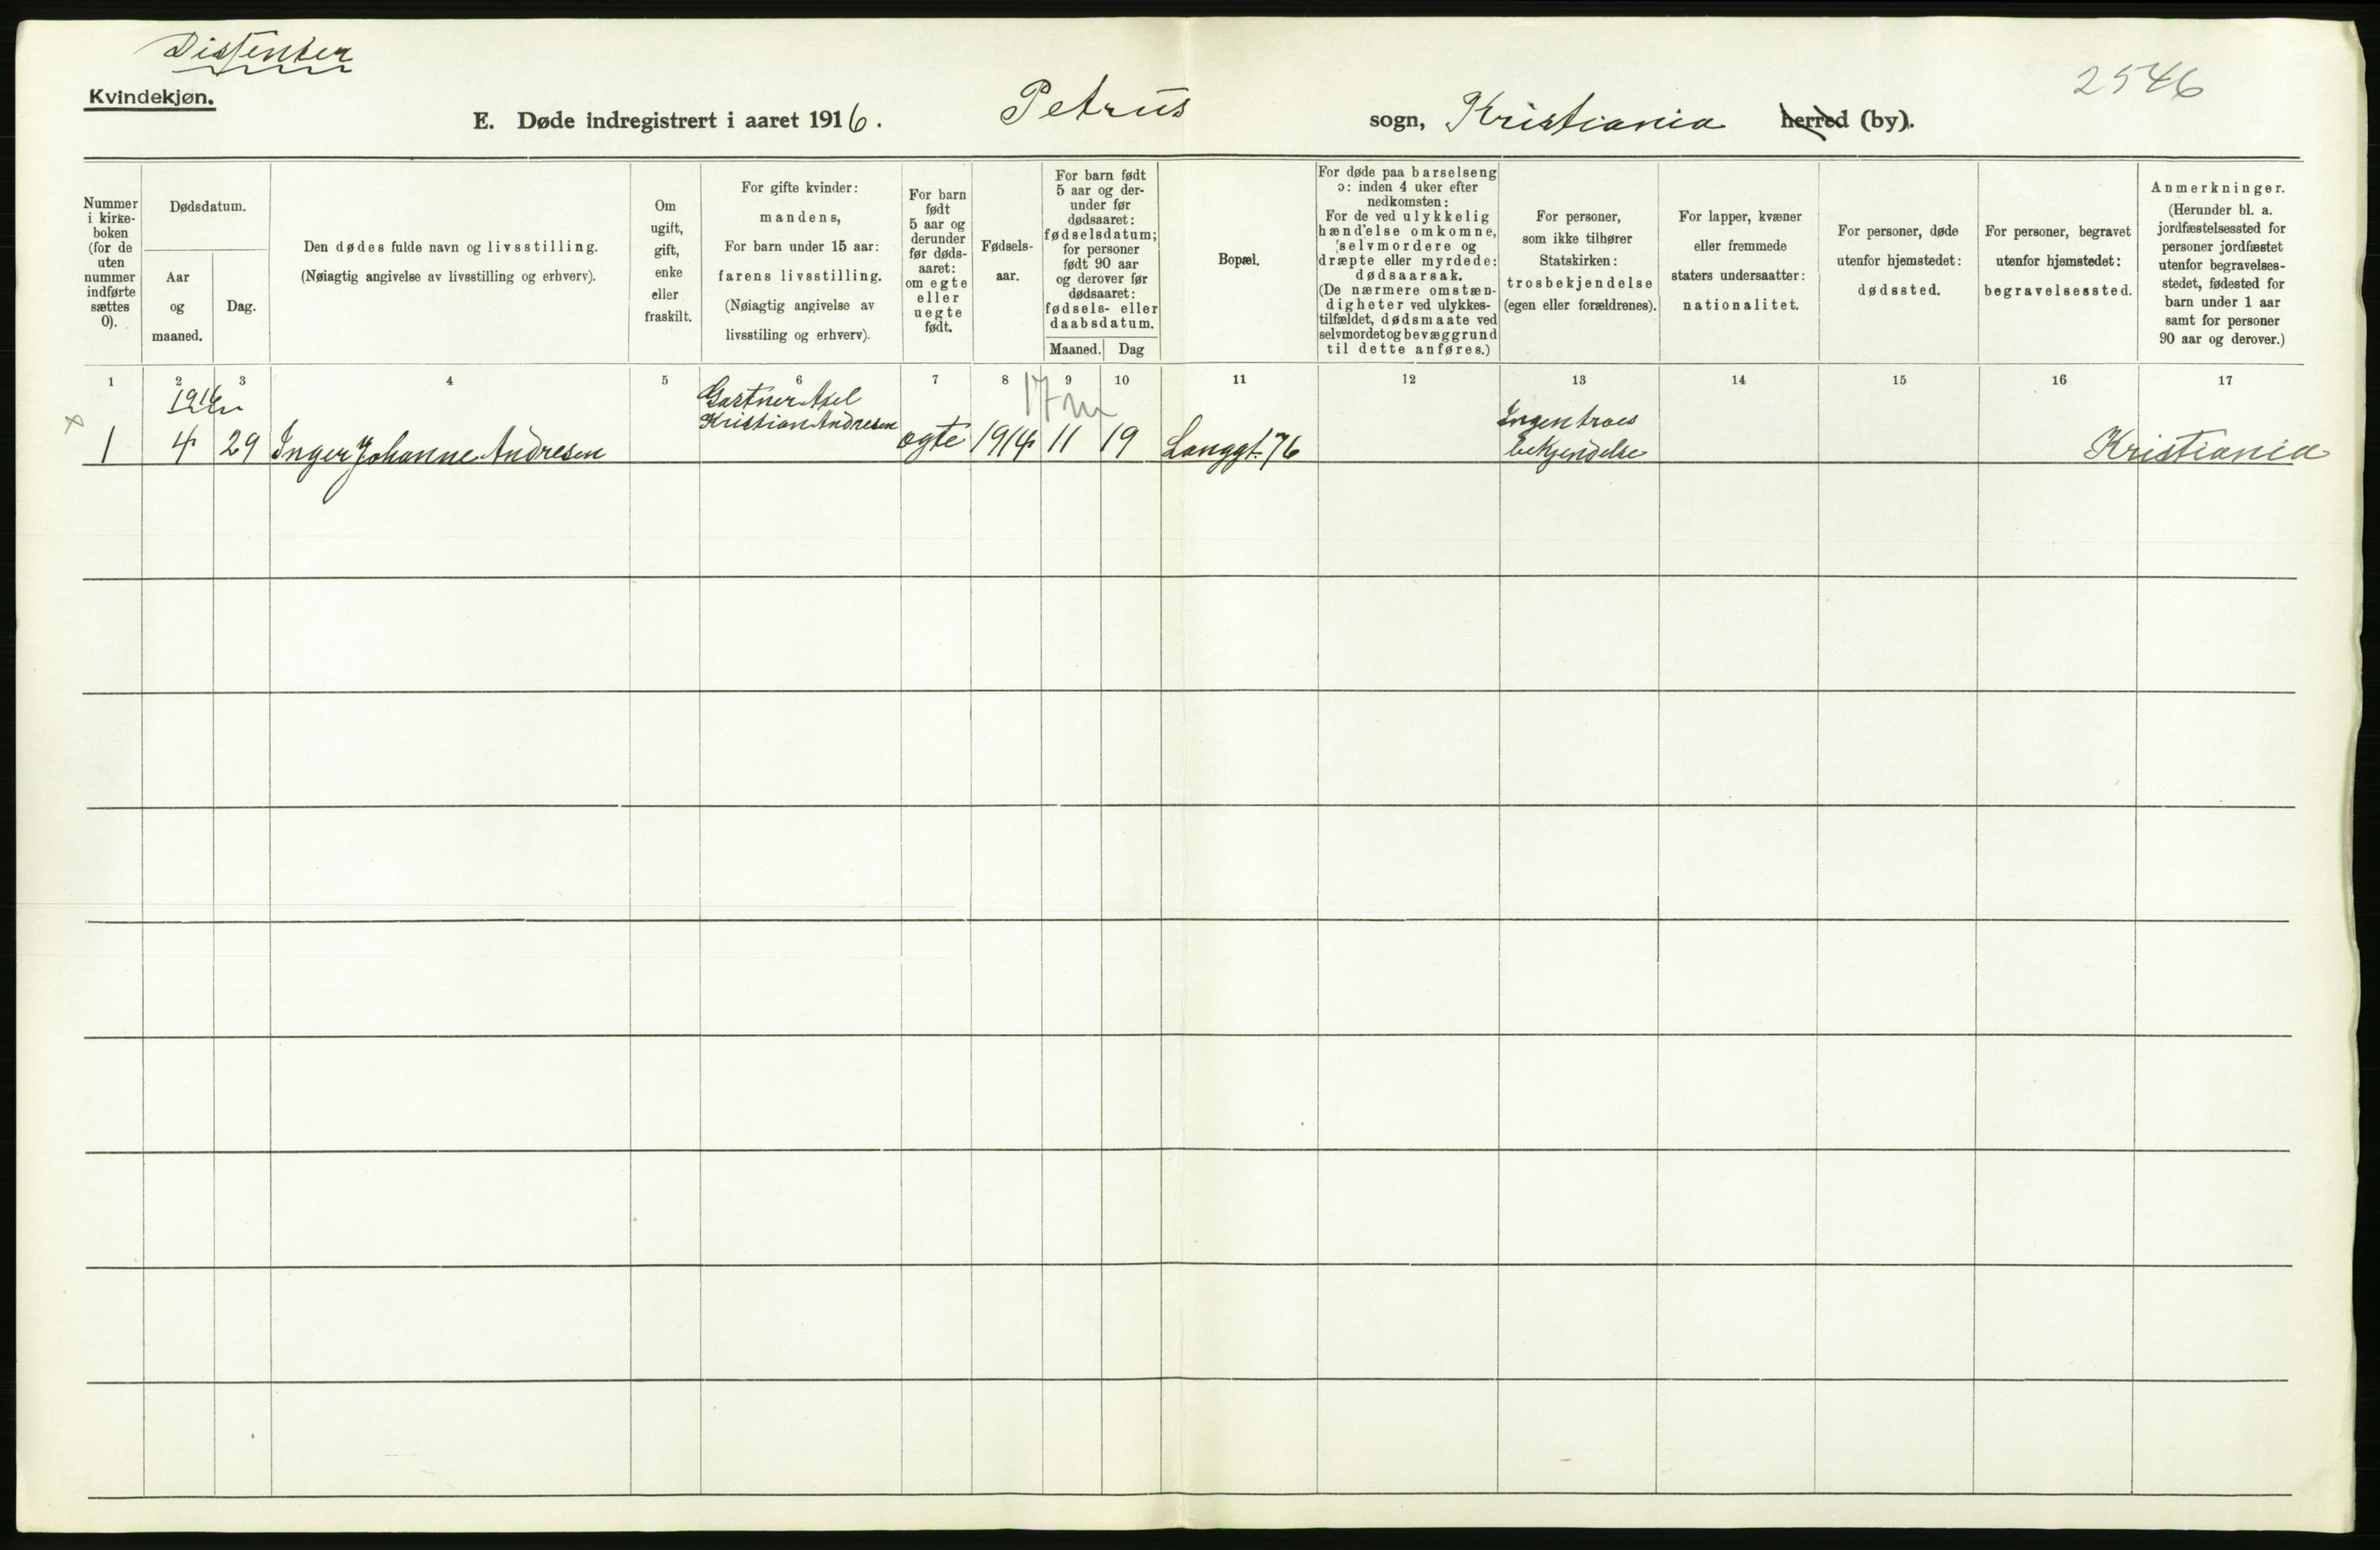 Dissenter
2546
Kvindekjøn.
E. Døde indregistrert i aaret 1916. Petrus sogn, Kristiania herred (by).
Nummer
i kirke-
boken
(for de
uten
nummer
indførte
sættes
0).
Dødsdatum.
Aar
og
maaned.
Dag.
Den dødes fulde navn og livsstilling.
(Nøiagtig angivelse av livsstilling og erhverv).
Om
ugift,
gift,
enke
eller
fraskilt.
For gifte kvinder:
mandens,
For barn under 15 aar:
farens livsstilling.
(Nøiagtig angivelse av
livsstiling og erhverv).
For barn
født
5 aar og
derunder
før døds-
aaret:
om egte
eller
uegte
født.
Fødsels-
aar.
For barn født
5 aar og der-
under før
dødsaaret:
fødselsdatum;
for personer
født 90 aar
og derover før
dødsaaret:
fødsels- eller
daabsdatum.
Maaned.
Dag
Bopæl.
For døde paa barselseng
ɔ: inden 4 uker efter
nedkomsten:
For de ved ulykkelig
hændelse omkomne,
selvmordere og
dræpte eller myrdede:
dødsaarsak.
(De nærmere omstæn-
digheter ved ulykkes-
tilfældet, dødsmaate ved
selvmordet og bevæggrund
til dette anføres.)
For personer,
som ikke tilhører
Statskirken:
trosbekjendelse
(egen eller forældrenes).
For lapper, kvæner
eller fremmede
staters undersaatter:
nationalitet.
For personer, døde
utenfor hjemstedet:
dødssted.
For personer, begravet
utenfor hjemstedet:
begravelsessted.
Anmerkninger.
(Herunder bl. a.
jordfæstelsessted for
personer jordfæstet
utenfor begravelses-
stedet, fødested for
barn under 1 aar
samt for personer
90 aar og derover.)
1 2 3 4 5 6 7 8 9 10 11 12 13 14 15 16 17
1916
Gartner Axel
17 m
x
Kristian Andresen
Ingen troes
1 4 29 Inger Johanne Andresen ogte 1914 11 19 Langgt. 76 bekjendelse Kristiania